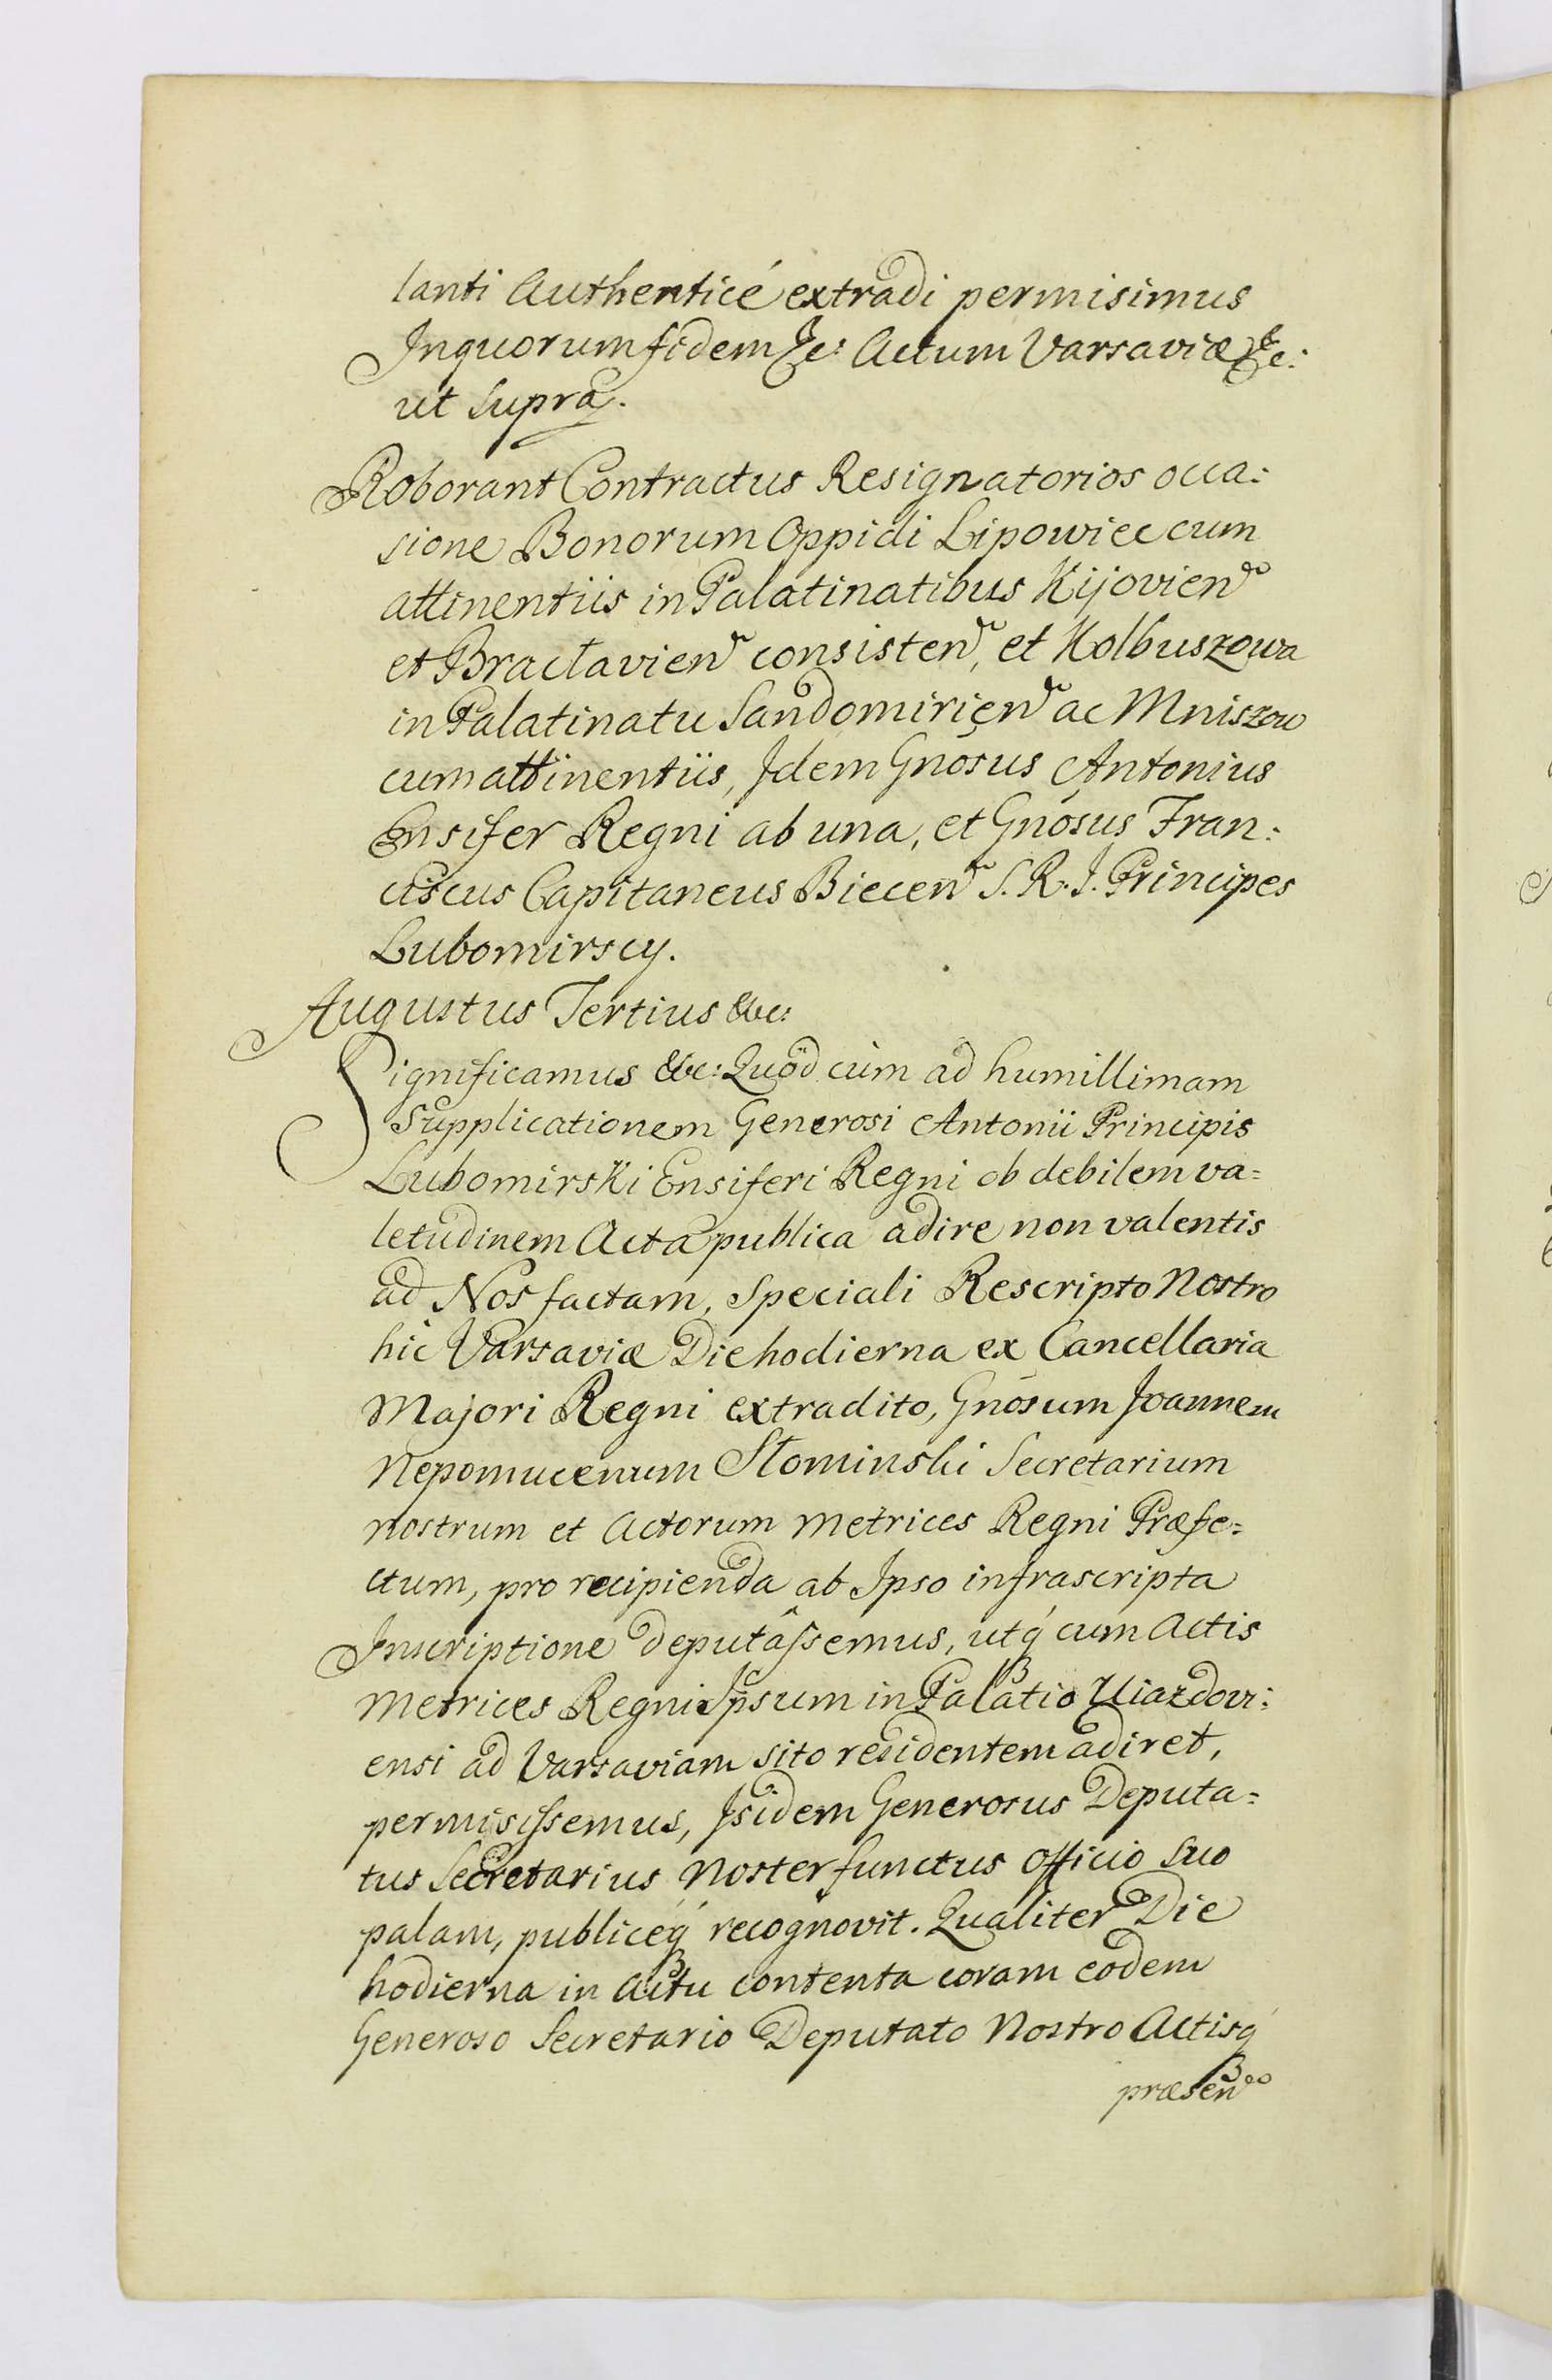 lanti Authenticé extradi permisimus
Inquorum fidem &c: Actum Varsaviæ &c:
ut supra.
Roborant Contractus Resignatorios occa:
sione Bonorum Oppidi Lipowiec cum
attinentiis in Palatinatibus Kijovien
et Braclavien consisten, et Kolbuszowa
in Palatinatu Sandomirien ac Mniszow
cum attinentiis, Idem Gnõsus Antonius
Ensifer Regni ab una, et Gnõsus Fran:
ciscus Capitaneus Biecen S. R. I. Principes
Lubomirscy.
Augustus Tertius &c:
Significamus &c: Quod cùm ad humillimam
Supplicationem Generosi Antonii Principis
Lubomirski Ensiferi Regni ob debilem va=
letudinem Acta publica adire non valentis
ad Nos factam, Speciali Rescripto Nostro
hic Varsaviæ Die hodierna ex Cancellaria
Majori Regni extradito, Gnõsum Joannem
Nepomucenum Słominski Secretarium
nostrum et Actorum Metrices Regni Præfe=
ctum, pro recipienda ab Ipso infrascripta
Inscriptione deputâssemus, utq́ cum Actis
Metrices Regni Ipsum in Palatio Uiazdovi:
ensi ad Varsaviam sito residentem adiret,
permisissemus, Isidem Generosus Deputa=
tus Secretarius Noster functus Officio suo
palam, publiceq́ recognovit. Qualiter Die
hodierna in Actu contenta coram eodem
Generoso Secretario Deputato Nostro Actisq́
præsen